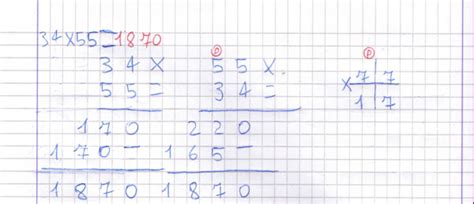 34×55=1870
34× 55×.
55= 34=
170 220
170- 165-
1870 1870
P P
× 7 7
1 7